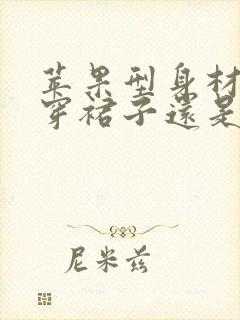 苹果型身材
穿裙子還是
尼米兹